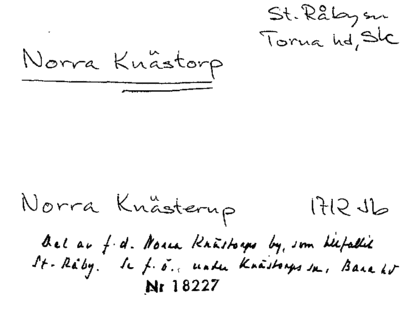 St. Råby sn
Torna hd, Sk
Norra Knästorp
Norra Knästerup 1712 Jb
Del av f.d. Norra Knästorps by, som tillfallit
St. Råby. Se f.ö. under Knästorps sn, Bara hd
Nr 18227